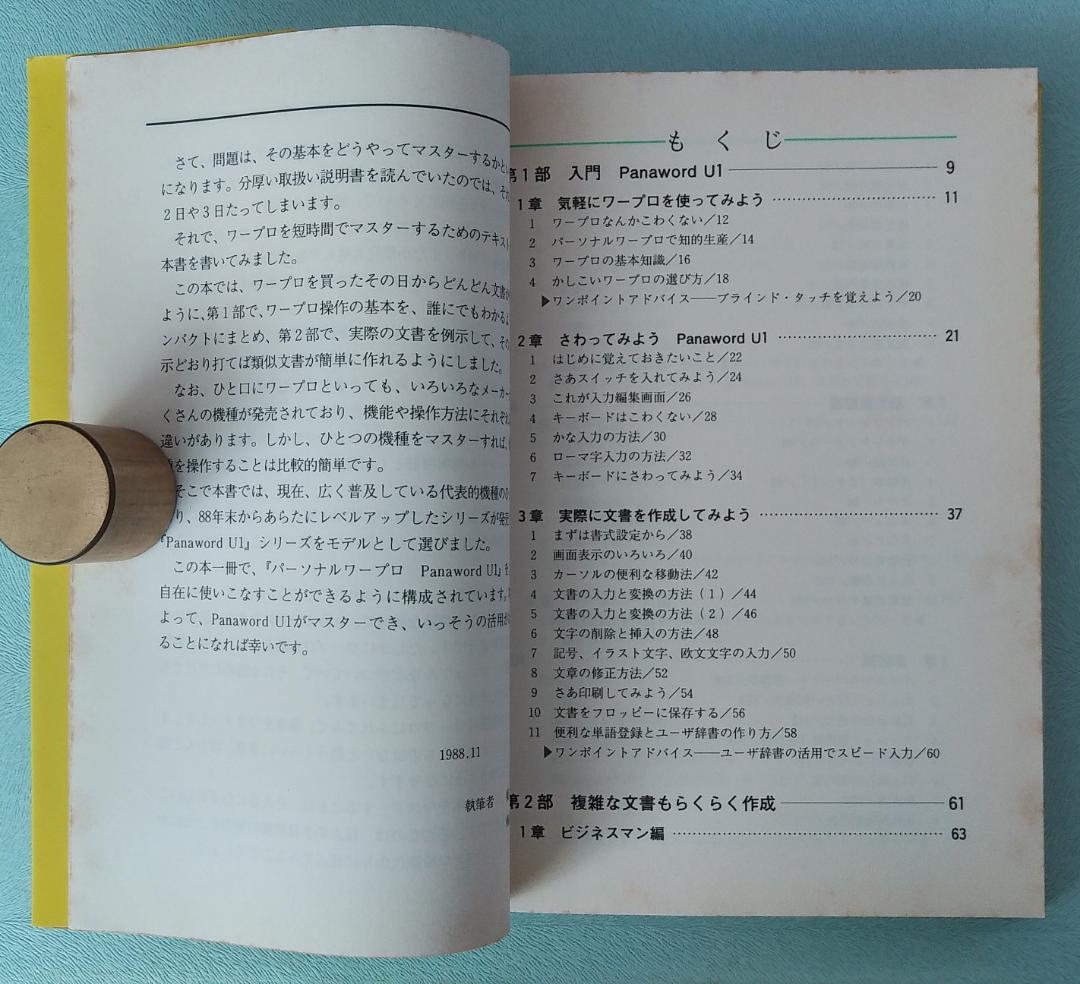 さて、問題は、その基本をどうやってマスターするかと
になります。分厚い取扱い説明書を読んでいたのでは、
2日や3日たってしまいます。
それで、ワープロを短時間でマスターするためのテキスト
本書を書いてみました。
この本では、ワープロを買ったその日からどんどん文書
ように、第1部で、ワープロ操作の基本を、誰にでもわかる
ンパクトにまとめ、第2部で、実際の文書を例示して、その
示どおり打てば類似文書が簡単に作れるようにしました。
なお、ひと口にワープロといっても、いろいろなメーカー
くさんの機種が発売されており、機能や操作方法にそれぞれ
違いがあります。しかし、ひとつの機種をマスターすれば、
を操作することは比較的簡単です。
そこで本書では、現在、広く普及している代表的機種の
り、88年末からあらたにレベルアップしたシリーズが発
『Panaword U1』シリーズをモデルとして選びました。
この本一冊で、『パーソナルワープロ Panaword U1』
自在に使いこなすことができるように構成されています。
よって、Panaword U1がマスターでき、いっそうの活用が
ることになれば幸いです。
1988.11
執筆者
もくじ
第1部 入門 Panaword U1 9
1章 気軽にワープロを使ってみよう 11
1 ワープロなんかこわくない/12
2 パーソナルワープロで知的生産/14
3 ワープロの基本知識/16
4 かしこいワープロの選び方/18
▶ワンポイントアドバイス——ブラインド・タッチを覚えよう/20
2章 さわってみよう Panaword U1 21
1 はじめに覚えておきたいこと/22
2 さあスイッチを入れてみよう/24
3 これが入力編集画面/26
4 キーボードはこわくない/28
5 かな入力の方法/30
6 ローマ字入力の方法/32
7 キーボードにさわってみよう/34
3章 実際に文書を作成してみよう 37
1 まずは書式設定から/38
2 画面表示のいろいろ/40
3 カーソルの便利な移動法/42
4 文書の入力と変換の方法(1)/44
5 文書の入力と変換の方法(2)/46
6 文字の削除と挿入の方法/48
7 記号、イラスト文字、欧文文字の入力/50
8 文章の修正方法/52
9 さあ印刷してみよう/54
10 文書をフロッピーに保存する/56
11 便利な単語登録とユーザ辞書の作り方/58
▶ワンポイントアドバイス——ユーザ辞書の活用でスピード入力/60
第2部 複雑な文書もらくらく作成 61
1章 ビジネスマン編 63